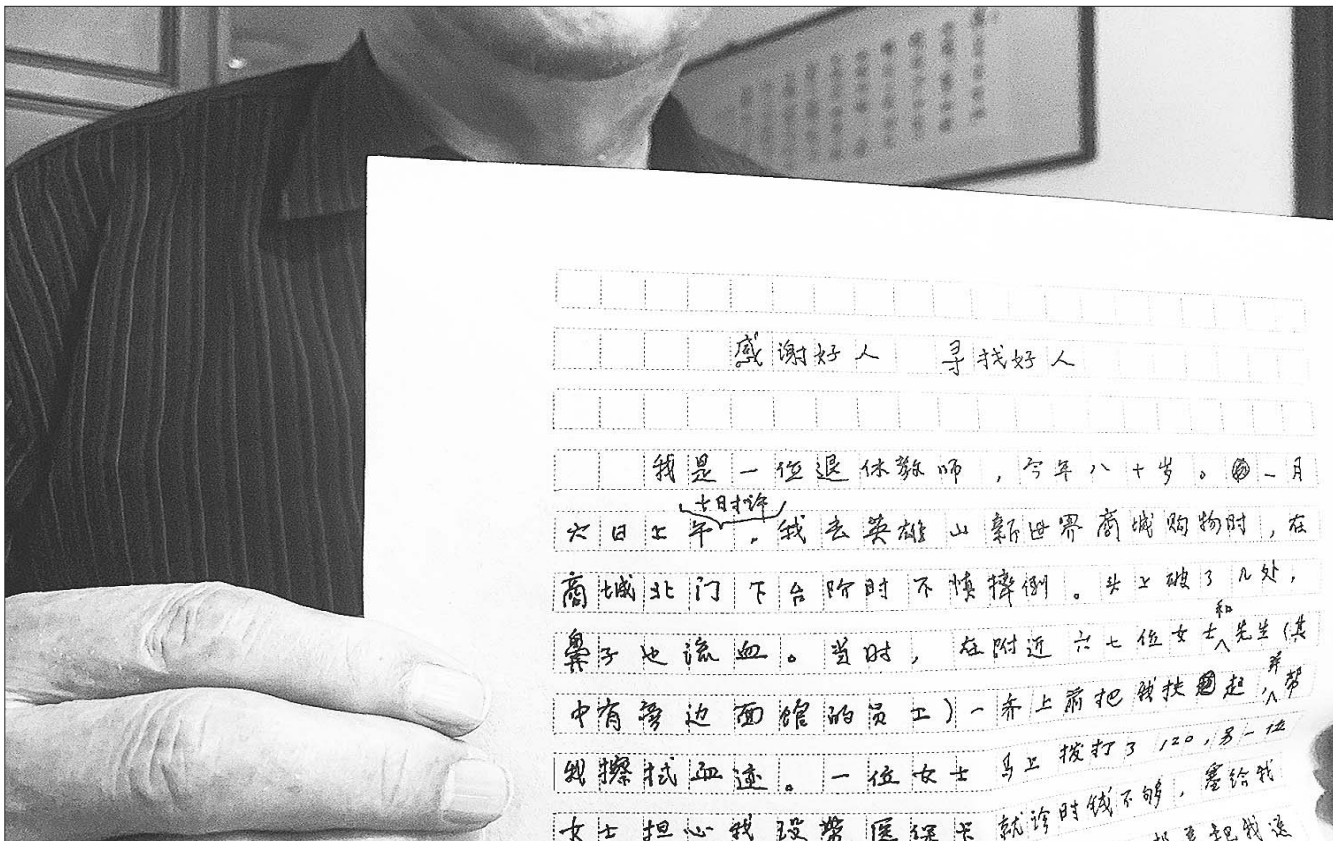 感谢好人 寻找好人
我是一位退休教师，今年八十岁。一月
七日时许
六日上午，我去英雄山新世界商城购物时，在
商城北门下台阶时不慎摔倒。头上破了几处，
和
鼻子也流血。当时，在附近六七位女士先生（其
并
中有旁边面馆的员工）一齐上前把我扶起，帮
我擦拭血迹。一位女士马上拨打了120，另一位
女士担心我没带医保卡就诊时钱不够，塞给我
把我送